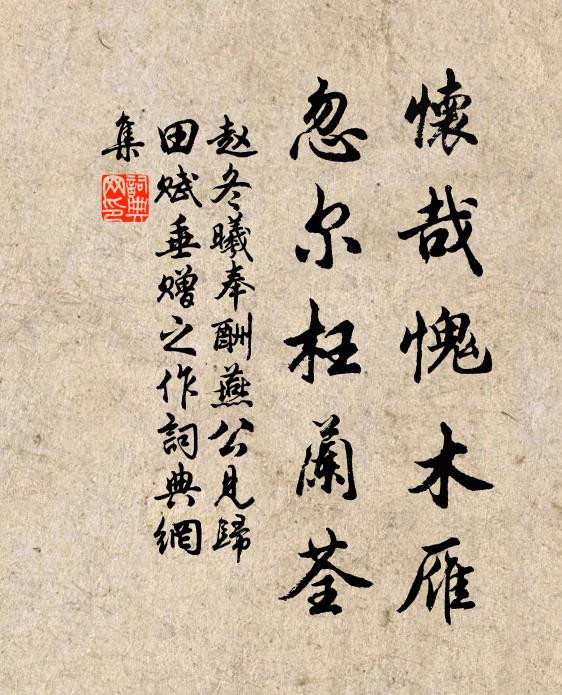 懷哉愧木雁
忽尔枉蘭荃
赵冬曦奉酬燕公見歸
田賦垂贈之作詞典網
集
詞典网印